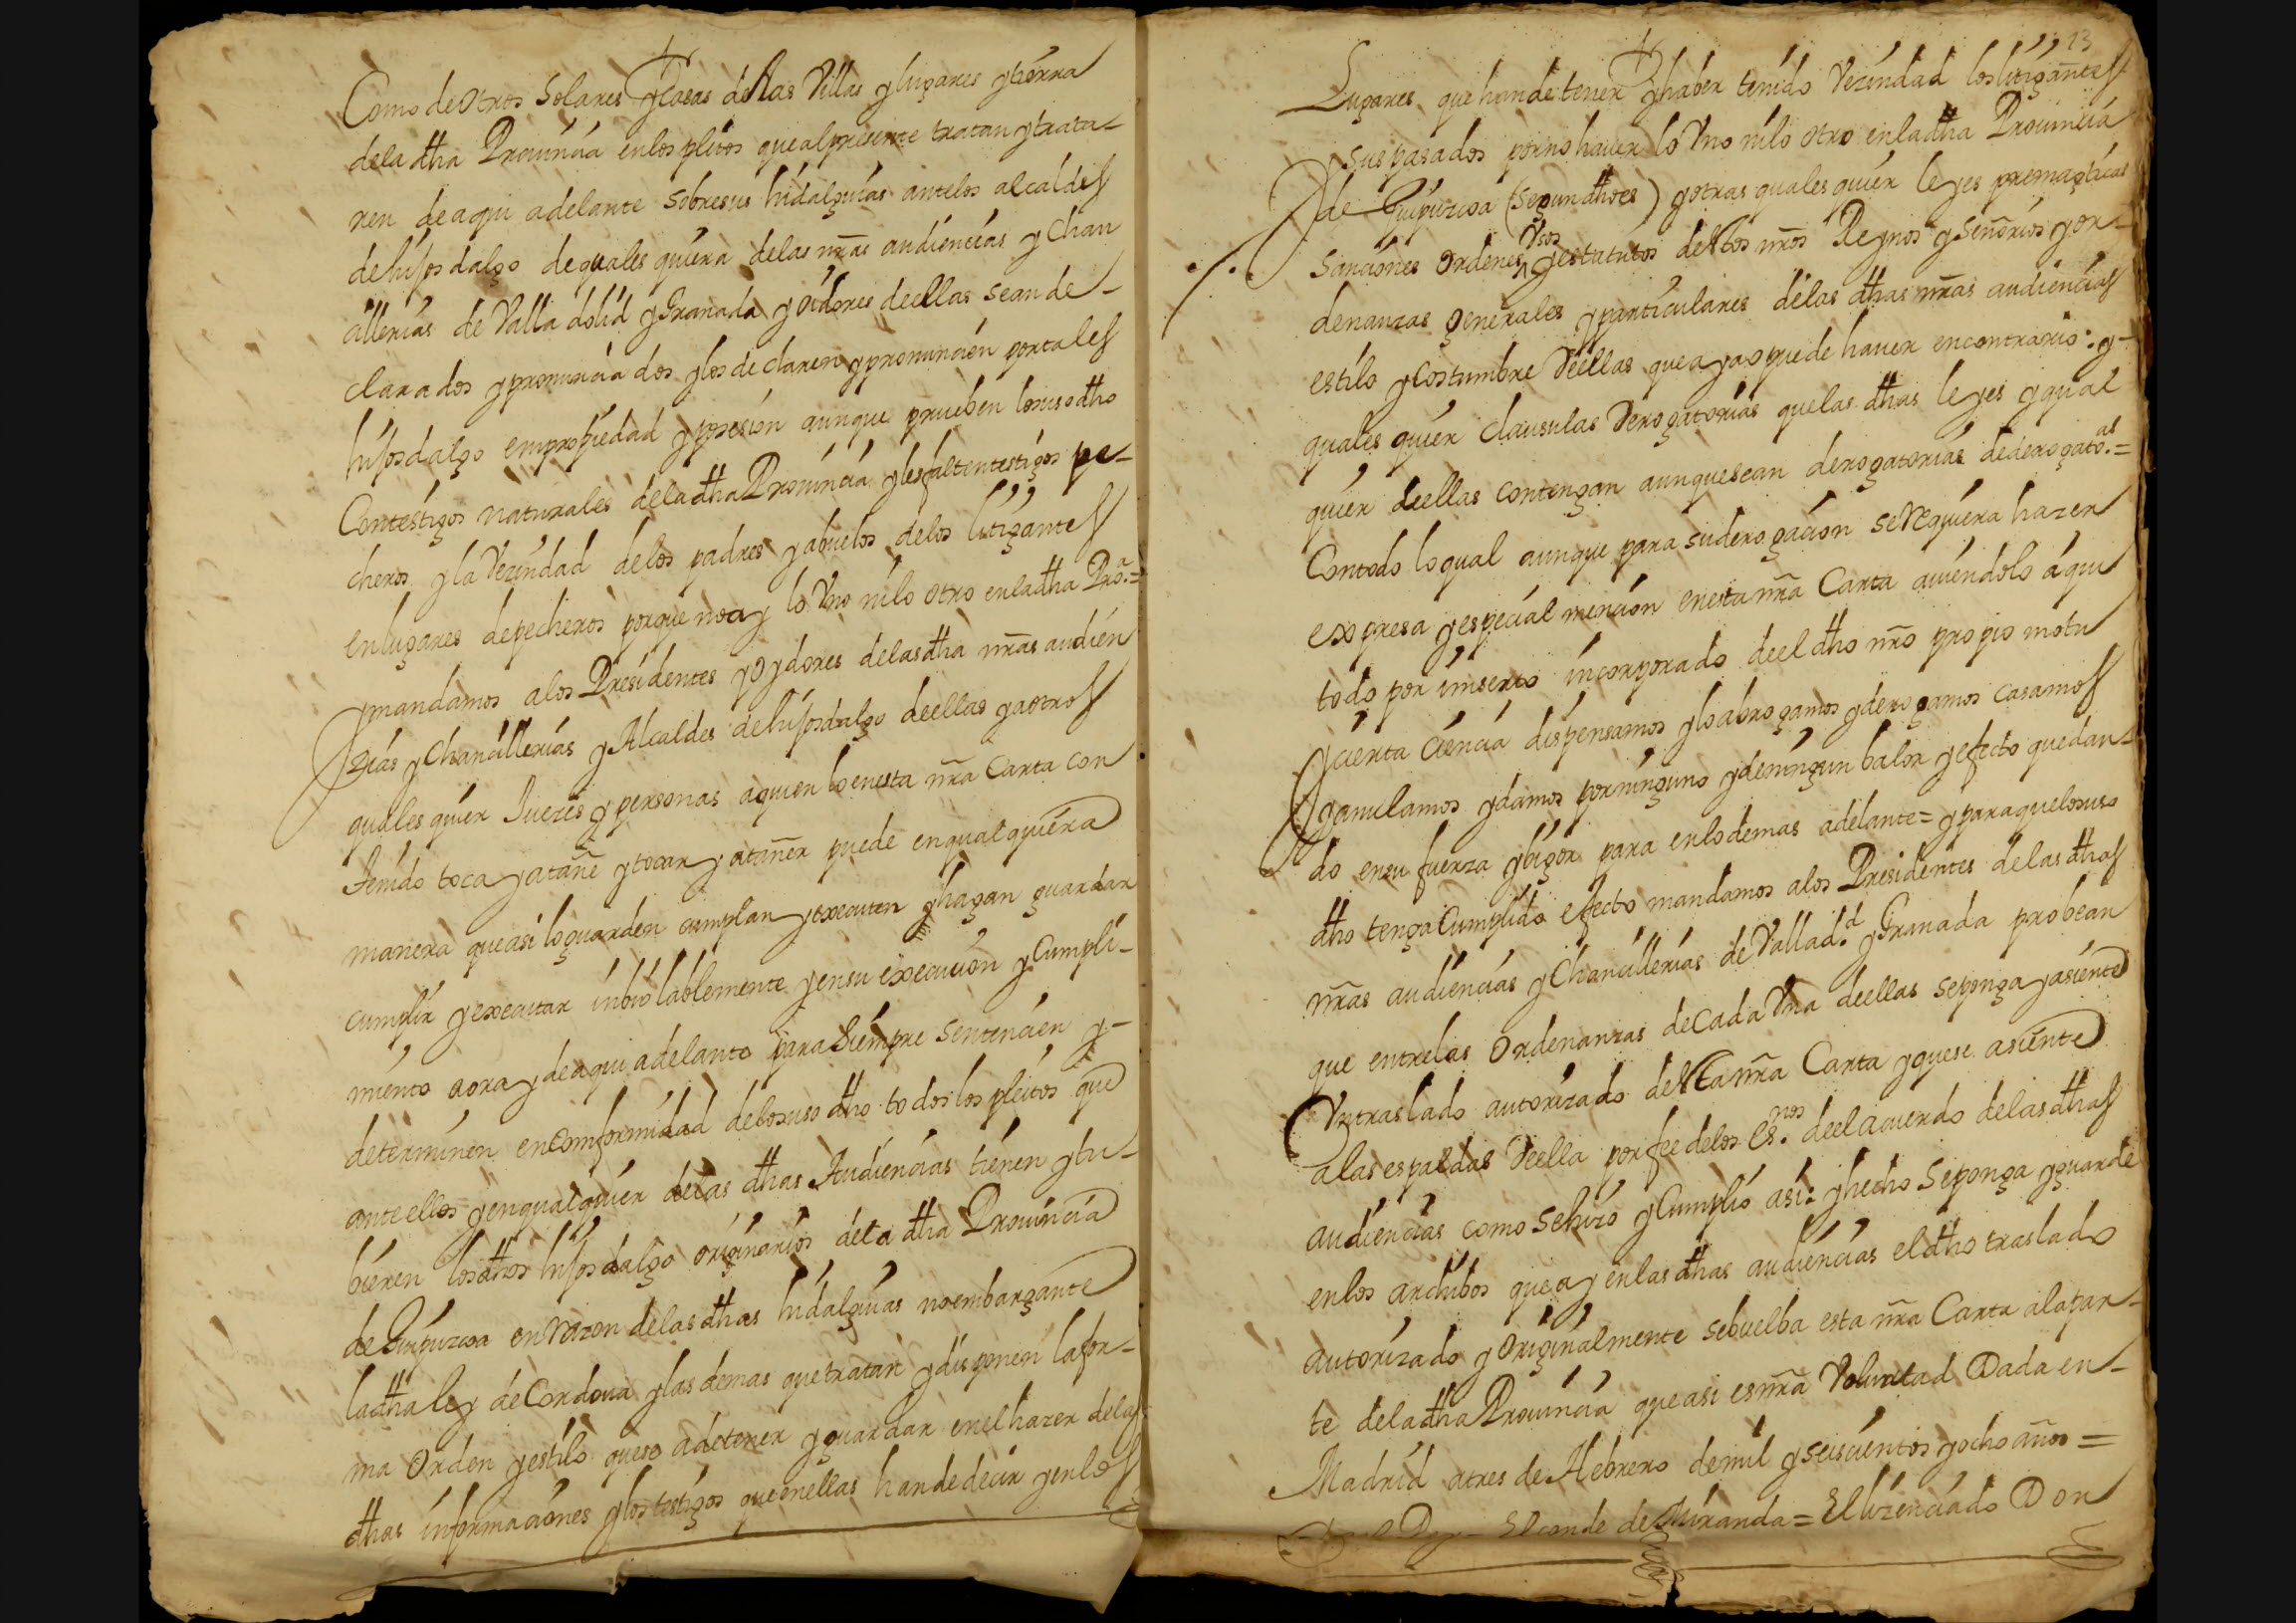 Como de otros Solares y Casas de las Villas y lugares y tierra
dela dha Prouincia enlos pleitos que al presente tratan y trata-
ren de aqui adelante sobre sus hidalguias antelos alcaldes
de hijos dalgo de quales quiera delas nr̃as audiencias y Chan
cillerias de Valladolid y Granada y oidores de ellas sean de-
clarados y pronunciados y los declaren y pronuncien por tales
hijosdalgo en propiedad y posesion aunque prueben lo suso dho
Con testigos naturales dela dha Prouincia y les falten testigos pe-
cheros y la Vezindad delos padres y abuelos delos litigantes
en lugares de pecheros porque no ay lo Vno nilo otro enla dha Proᵃ.=
y mandamos alos Presidentes y oydores delas dha nr̃as audien
zias y Chancillerias y Alcaldes de hijosdalgo de ellas y a otros
quales quier Juezes y personas a quien lo en esta nr̃a Carta con
tenido toca y atañe y tocar y atañer puede en qual quiera
manera que asi lo guarden cumplan y executen y hagan guardar
cumplir y executar inbiolablemente y en su execucion y Cumpli-
miento aora y de aqui adelante para siempre sentencien y-
determinen en conformidad delo suso dho todos los pleitos que
ante ellos y en qual quier delas dhas Audiencias tienen y tu-
bieren los dhos hijosdalgo originarios dela dha Prouincia
de Guipuzcoa en Razon delas dhas hidalguias no embargante
la dha ley de Cordoua y las demas que tratan y disponen la for-
ma orden y estilo que se a de tener y guardar en el hazer delas
dhas informaciones y los testigos que en ellas han de decir y en los
13
Lugares que han de tener y haber tenido Vezindad los litigantes
y sus pasados por no hauer lo Vno nilo otro enla dha Prouincia
de Guipuzcoa (segun dho es) y otras quales quier leyes premagticas
Sanciones ordenes Vsos y estatutos destos nr̃os Reynos y señorios y or-
denanzas generales y particulares delas dhas nr̃as audiencias
estilo y costumbre de ellas que aya o puede hauer en contrario: y-
quales quier clausulas derogatorias que las dhas leyes y qual
quier de ellas contengan aunque sean derogatorias de derogato.ᵃˢ=
Con todo lo qual aunque para su derogacion se Requiera hazer
expresa y especial mencion en esta nr̃a Carta auiendolo aqui
todo por inserto incorporado de el dho nr̃o propio motu
y cierta ciencia dispensamos y lo abrogamos y derogamos casamos
y anulamos y damos por ninguno y de ningun balor y efecto quedan-
do en su fuerza y bigor para enlo demas adelante= y para que lo suso
dho tenga Cumplido efecto mandamos alos Presidentes delas dhas
nr̃as audiencias y Chancillerias de Vallad.ᵈ y Granada probean
que entre las ordenanzas de cada Vna de ellas se ponga y asiente
Vn traslado autorizado desta nr̃a Carta y que se asiente
alas espaldas de ella por fee delos es.ⁿᵒˢ de el acuerdo delas dhas
audiencias como se hizo y Cumplio asi: y hecho se ponga y guarde
en los archibos que ay en las dhas audiencias el dho traslado
autorizado y originalmente se buelba esta nr̃a Carta ala par-
te dela dha Prouincia que asi es nr̃a Voluntad Dada en-
Madrid a tres de Hebrero de mil y seiscientos y ocho años=
El Conde de Miranda = El lizenciado Don